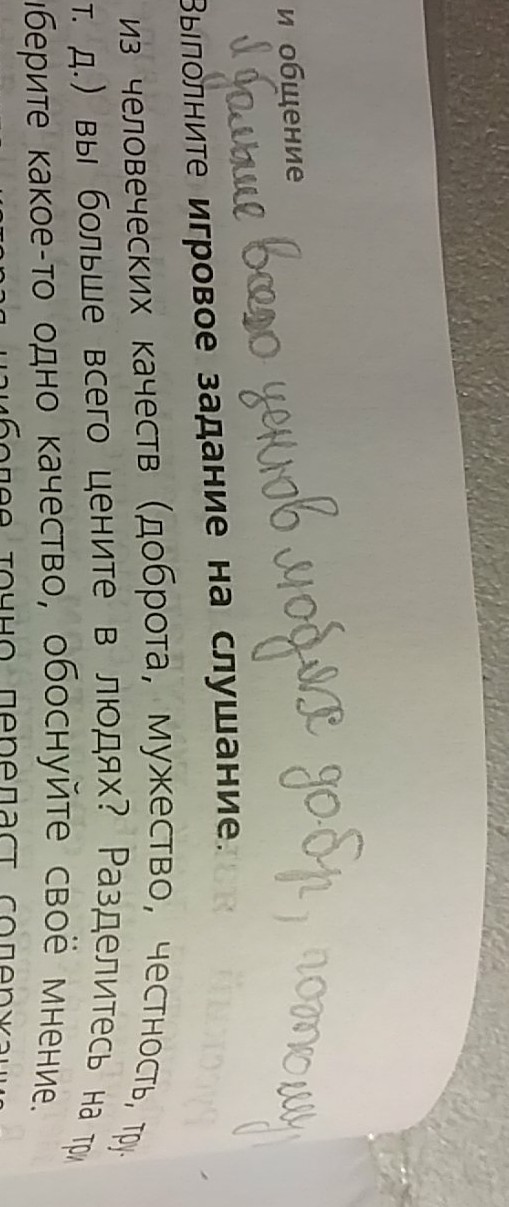 и общение
Я больше всего ценю в людях добр, потому
Выполните игровое задание на слушание.
из человеческих качеств (доброта, мужество, честность, тру-
т. д.) вы больше всего цените в людях? Разделитесь на три
ыберите какое-то одно качество, обоснуйте своё мнение.
которая наиболее точно передаст содержание